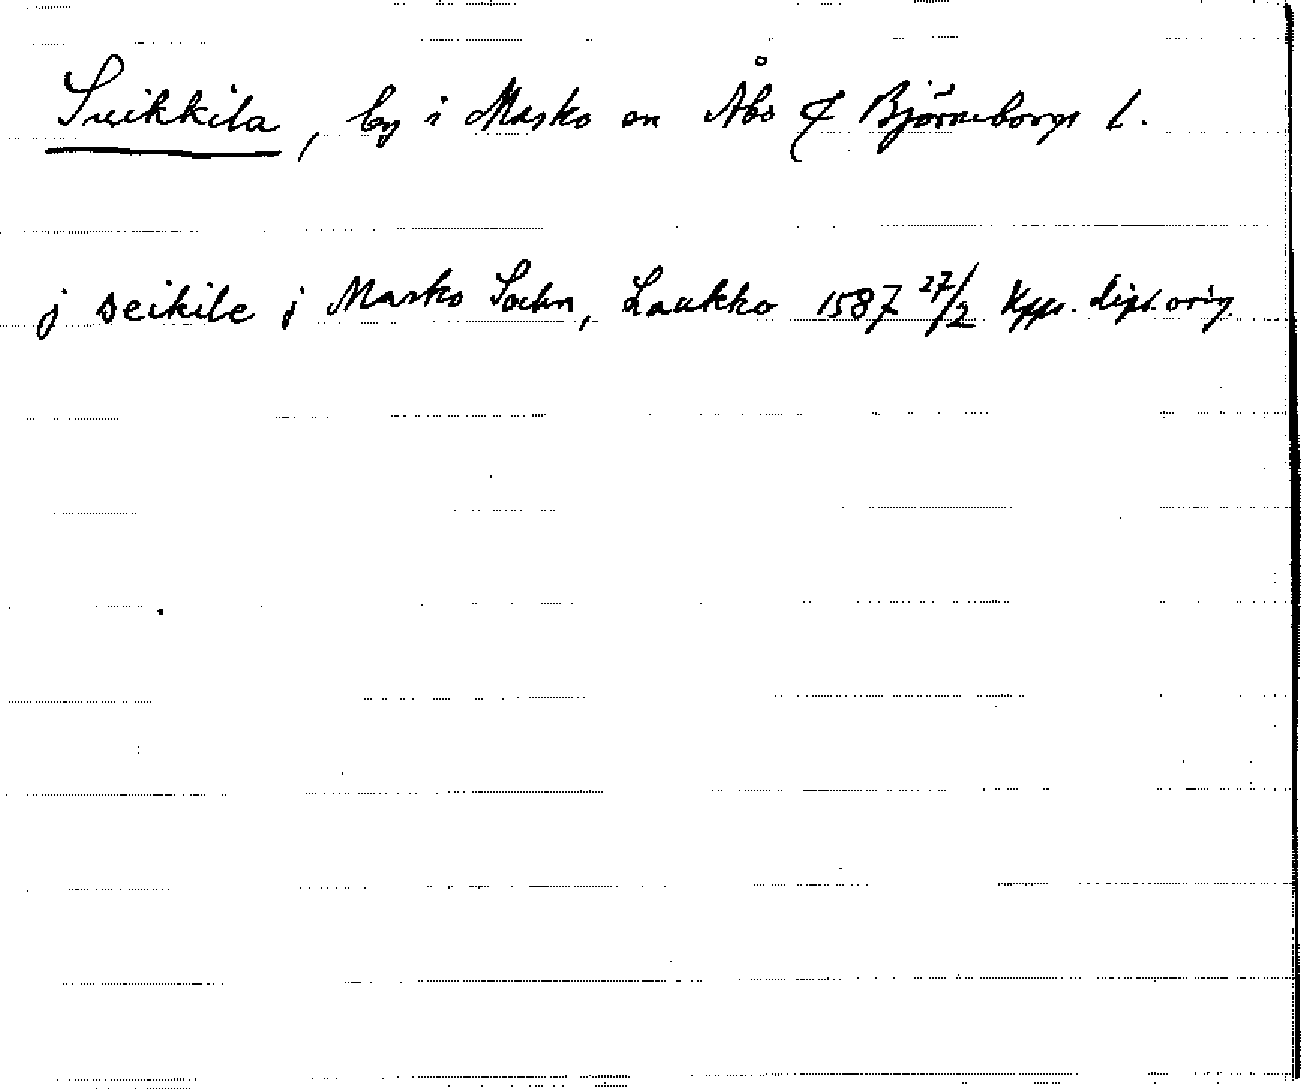 Seikkila, by i Masko sn Åbo & Björneborgs l.
j seikile j Masko Sockn, Laukko 1587 27/2 Kpps. dipl. orig.